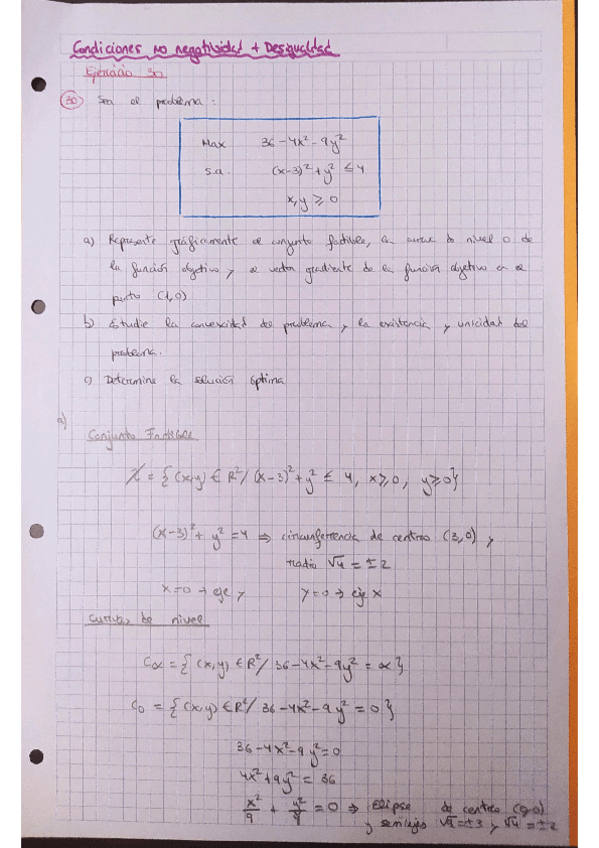 Condiciones no negatividad + Desigualdad
Ejercicio 30
30 Sea el problema:
Max 36-4x²-9y²
s.a. (x-3)²+y² ≤ 4
x,y ≥ 0
a) Represente gráficamente el conjunto factible, la curva de nivel 0 de
la función objetivo y el vector gradiente de la función objetivo en el
punto (1,0)
b) Estudie la convexidad del problema y la existencia y unicidad del
problema.
c) Determine la solución óptima
a)
Conjunto Factible
X = { (x,y) ∈ R² / (x-3)²+y² ≤ 4, x≥0, y≥0}
(x-3)²+ y² = 4 ⇒ circunferencia de centro (3,0) y
radio √4 = ±2
x=0 → eje y y=0 → eje x
Curvas de nivel
Cα = { (x,y) ∈ R² / 36-4x²-9y² = α }
C0 = { (x,y) ∈ R² / 36-4x²-9y² = 0 }
36-4x²-9y²=0
4x²+9y² = 36
x²/9 + y²/4 = 0 ⇒ Elipse de centro (0,0)
y semiejes √9=±3 y √4=±2